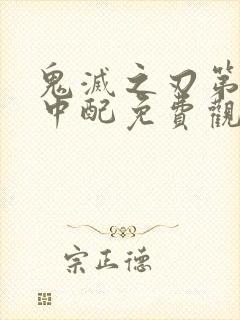 鬼滅之刃第
中配免費觀
宗正德